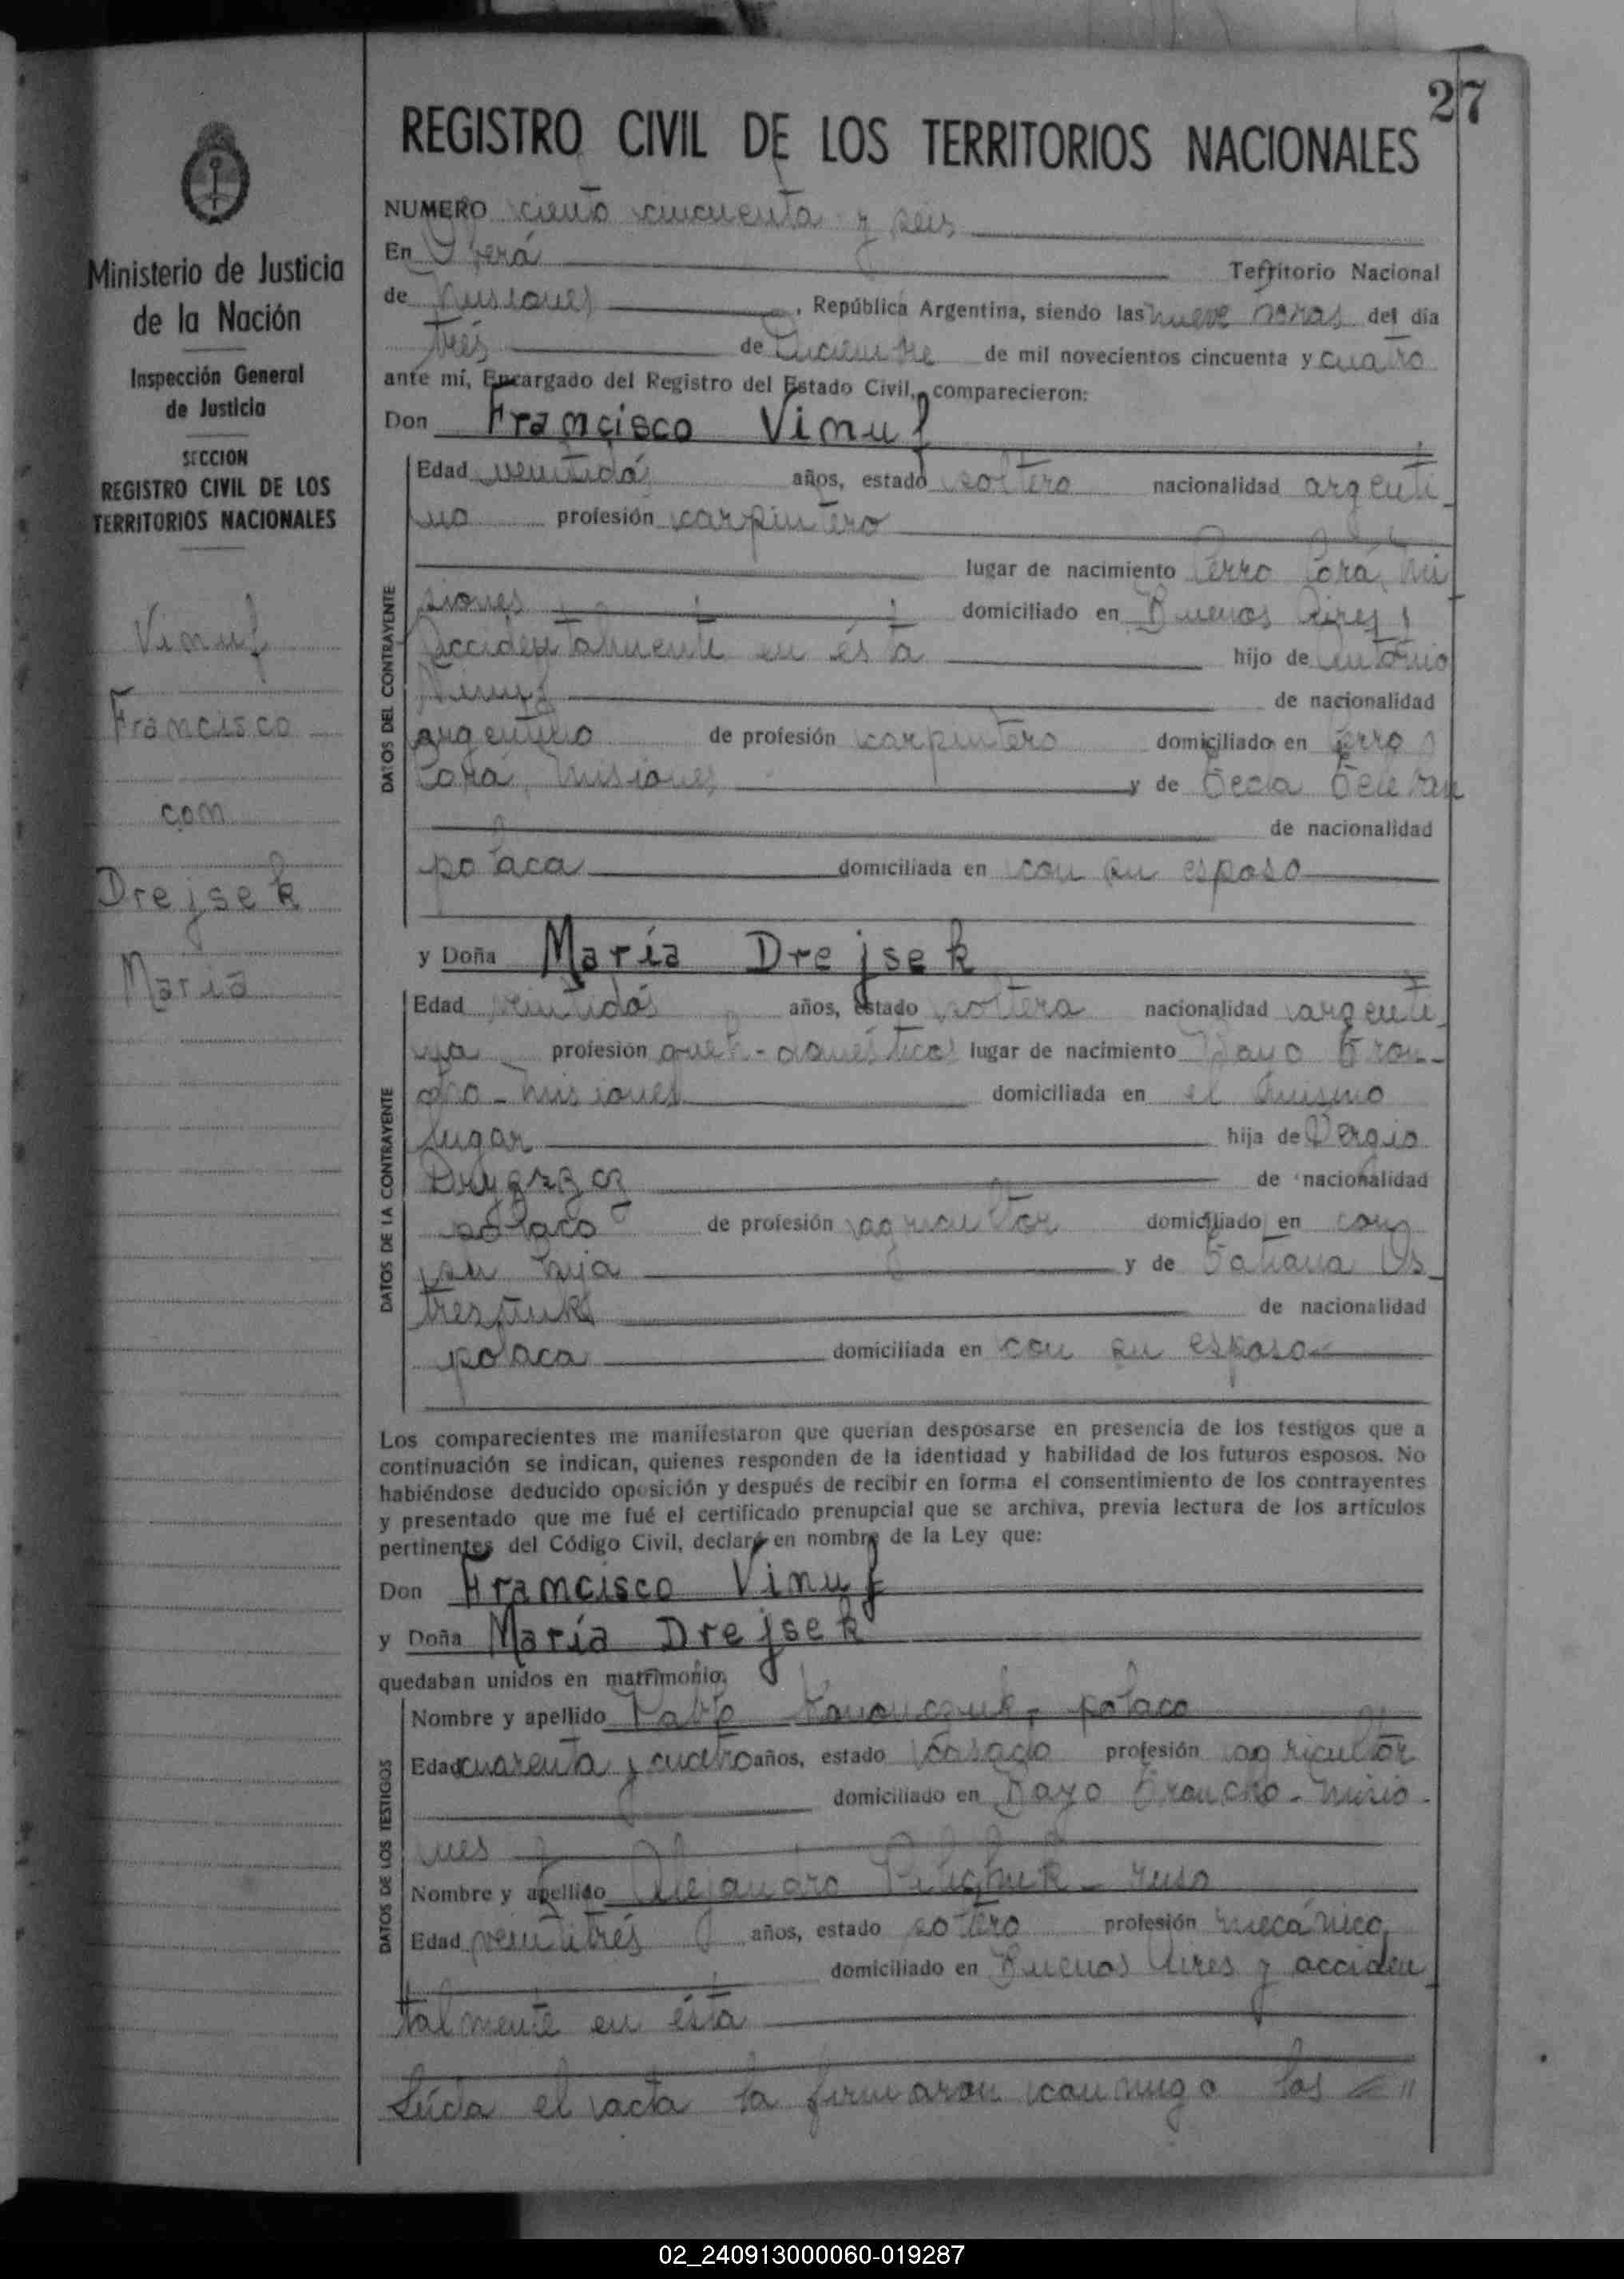 27
REGISTRO CIVIL DE LOS TERRITORIOS NACIONALES
Ministerio de Justicia
de la Nación
Inspección General
de Justicia
SECCION
REGISTRO CIVIL DE LOS
TERRITORIOS NACIONALES
Vinuf
Francisco
con
Drejsek
María
NUMERO ciento cincuenta y seis
En Oberá Territorio Nacional
de Misiones, República Argentina, siendo las nueve horas del día
trés de Diciembre de mil novecientos cincuenta y cuatro
ante mí, Encargado del Registro del Estado Civil, comparecieron:
Don Francisco Vinuf
DATOS DEL CONTRAYENTE
Edad veintidós años, estado soltero nacionalidad argenti
no profesión carpintero
lugar de nacimiento Cerro Corá, Mi
siones domiciliado en Buenos Aires y
accidentalmente en ésta hijo de Antonio
Vinuf de nacionalidad
argentino de profesión carpintero domiciliado en Cerro
Corá, Misiones y de Tecla
de nacionalidad
polaca domiciliada en con su esposo
y Doña María Drejsek
DATOS DE LA CONTRAYENTE
Edad veintidós años, estado soltera nacionalidad argenti
na profesión queh-domésticos lugar de nacimiento Bayo Tron-
cho-Misiones domiciliada en el mismo
lugar hija de Sergio
de nacionalidad
polaco de profesión agricultor domiciliado en con
su hija y de Tatiana Os
de nacionalidad
polaca domiciliada en con su esposo
Los comparecientes me manifestaron que querían desposarse en presencia de los testigos que a
continuación se indican, quienes responden de la identidad y habilidad de los futuros esposos. No
habiéndose deducido oposición y después de recibir en forma el consentimiento de los contrayentes
y presentado que me fué el certificado prenupcial que se archiva, previa lectura de los artículos
pertinentes del Código Civil, declaré en nombre de la Ley que:
Don Francisco Vinuf
y Doña María Drejsek
quedaban unidos en matrimonio.
DATOS DE LOS TESTIGOS
Nombre y apellido Pablo polaco
Edad cuarenta y cuatro años, estado casado profesión agricultor
domiciliado en Bayo Troncho-Misio-
nes
Nombre y apellido Alejandro ruso
Edad veintitrés años, estado soltero profesión mecánico
domiciliado en Buenos Aires y acciden
talmente en ésta
Leída el acta la firmaron conmigo los "
02_240913000060-019287